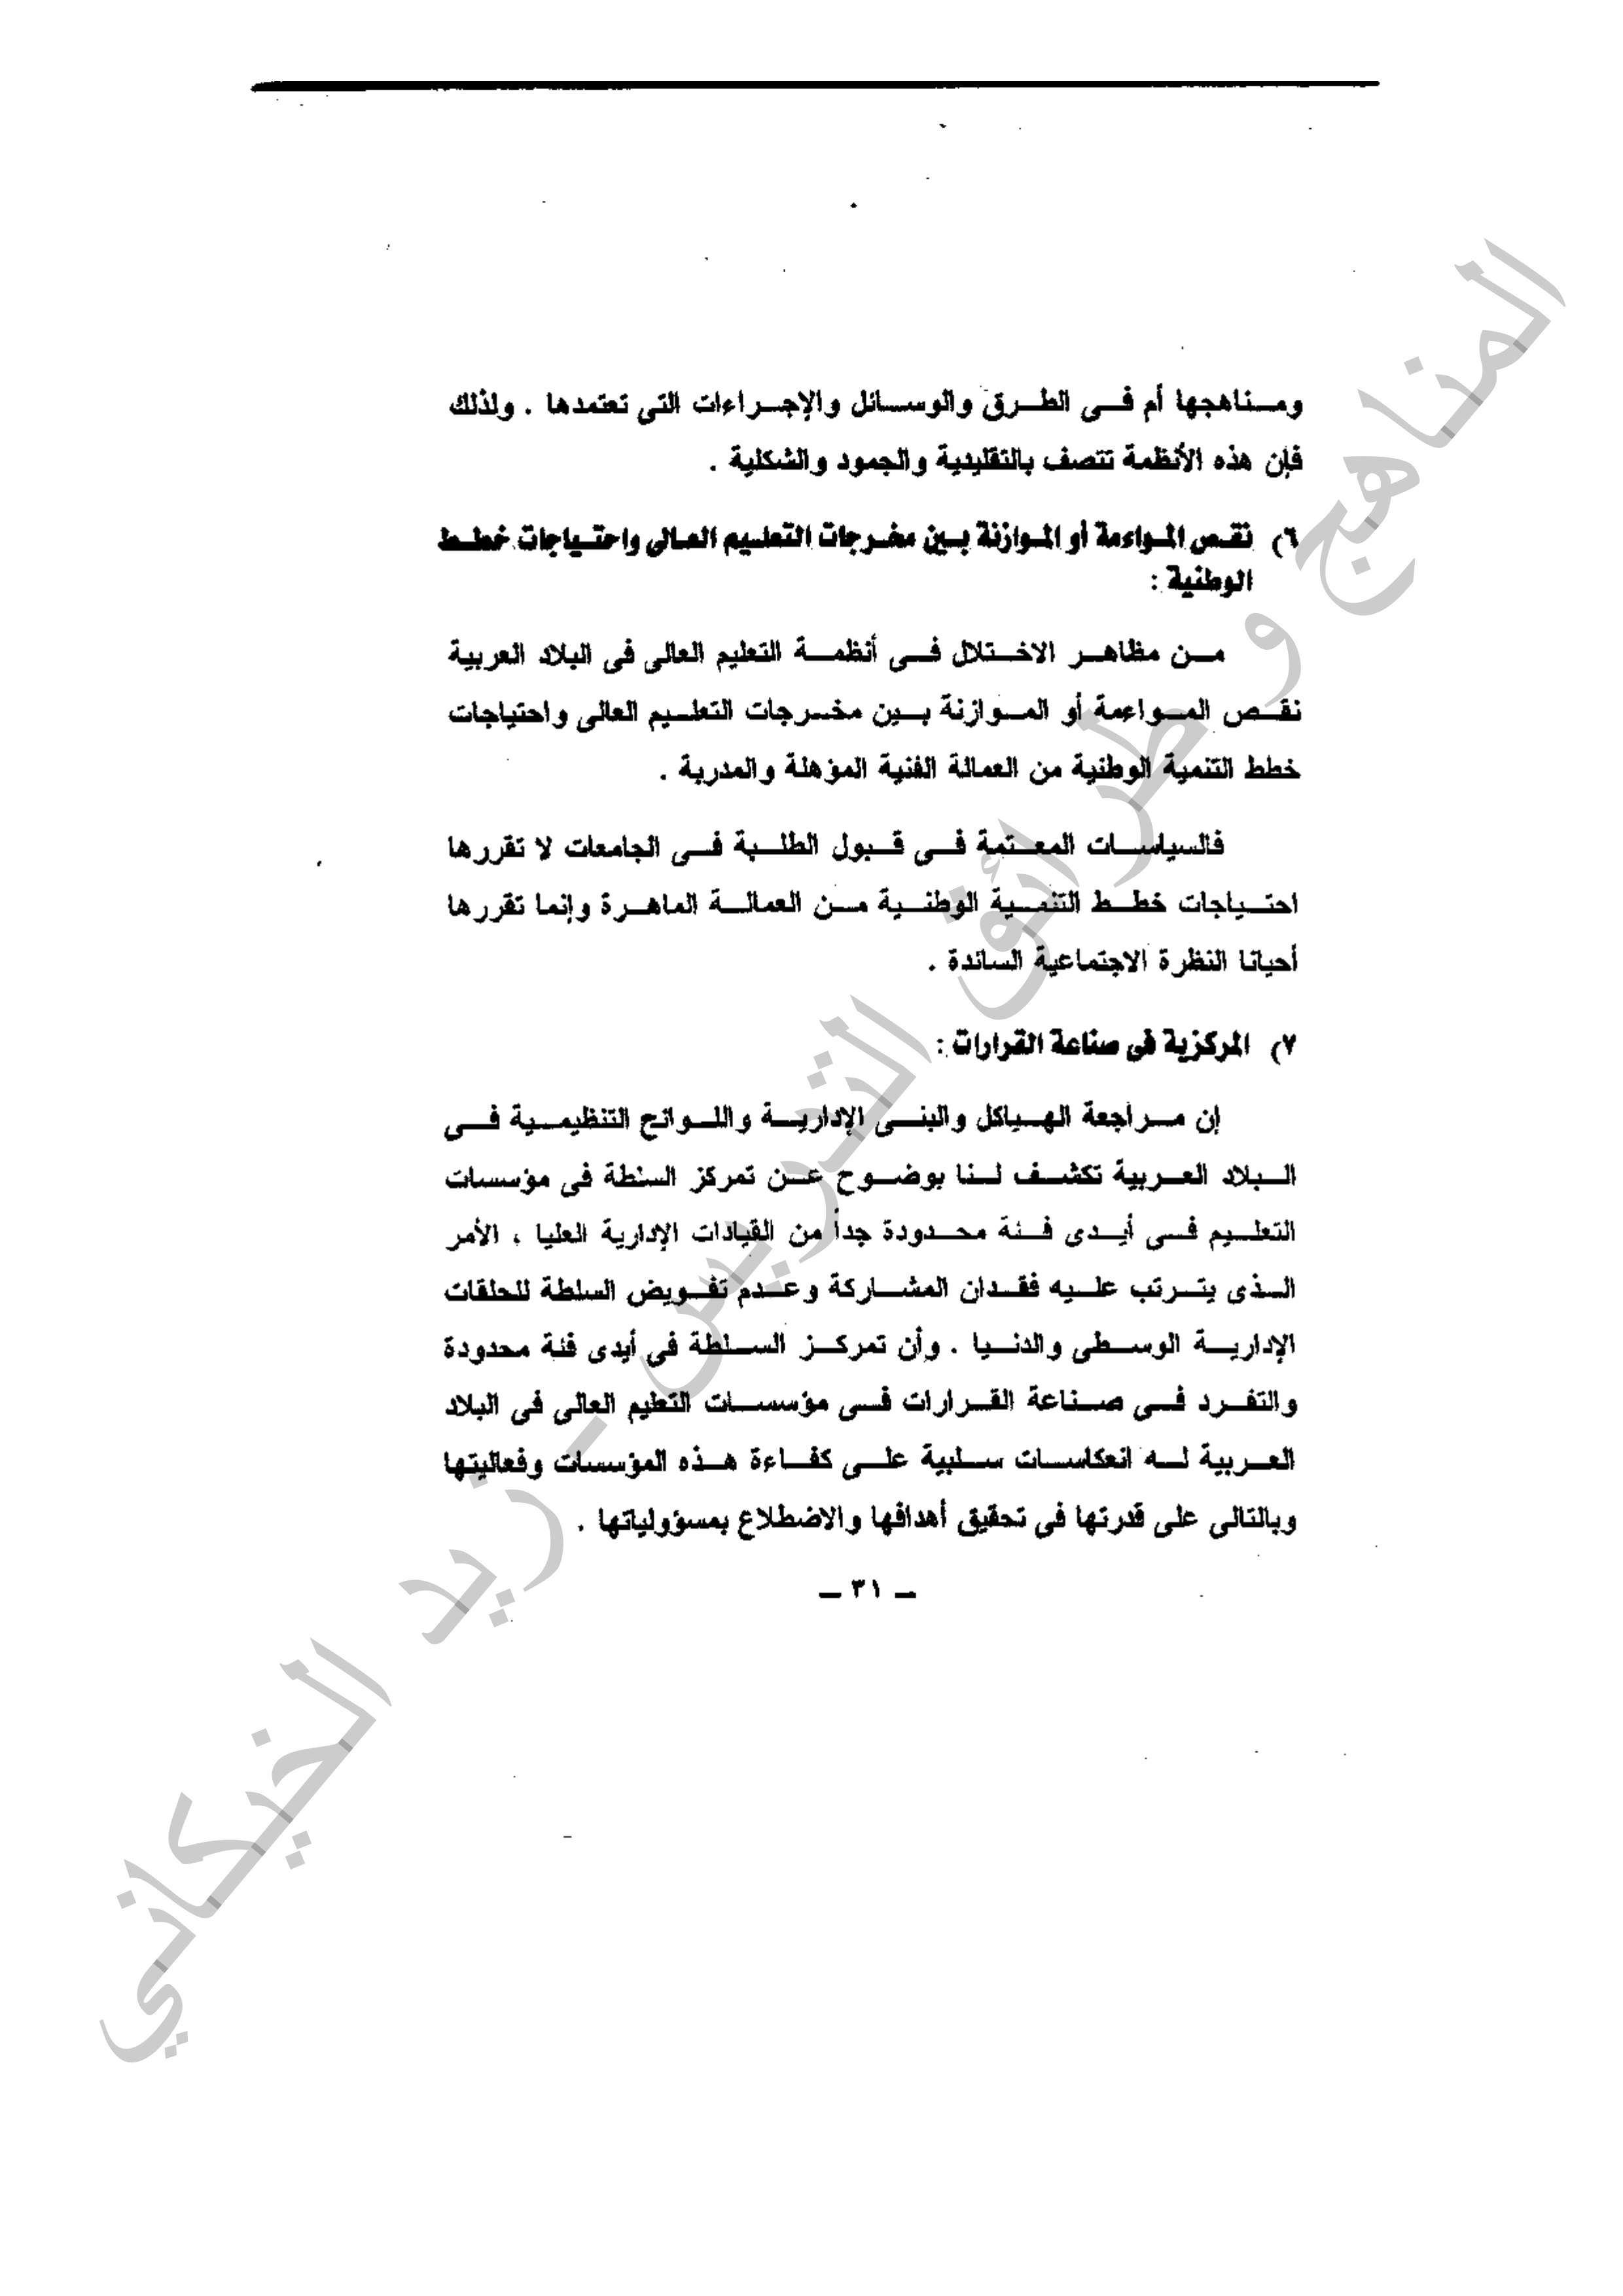 ومناهجها أم فى الطرق والوسائل والإجراءات التى تعتمدها . ولذلك
فإن هذه الأنظمة تتصف بالتقليدية والجمود والشكلية .
٦) نقص المواءمة أو الموازنة بين مخرجات التعليم العالى واحتياجات خطط
الوطنية :
من مظاهر الاختلال فى أنظمة التعليم العالى فى البلاد العربية
نقص المواءمة أو الموازنة بين مخرجات التعليم العالى واحتياجات
خطط التنمية الوطنية من العمالة الفنية المؤهلة والمدربة .
فالسياسات المعتمة فى قبول الطلبة فى الجامعات لا تقررها
احتياجات خطط التنمية الوطنية من العمالة الماهرة وإنما تقررها
أحيانا النظرة الاجتماعية السائدة .
٧) المركزية فى صناعة القرارات :
إن مراجعة الهياكل والبنى الإدارية واللوائح التنظيمية فى
البلاد العربية تكشف لنا بوضوح عن تمركز السلطة فى مؤسسات
التعليم فى أيدى فئة محدودة جداً من القيادات الإدارية العليا ، الأمر
الذى يترتب عليه فقدان المشاركة وعدم تفويض السلطة للحلقات
الإدارية الوسطى والدنيا . وأن تمركز السلطة فى أيدى فئة محدودة
والتفرد فى صناعة القرارات فى مؤسسات التعليم العالى فى البلاد
العربية له انعكاسات سلبية على كفاءة هذه المؤسسات وفعاليتها
وبالتالى على قدرتها فى تحقيق أهدافها والاضطلاع بمسؤولياتها .
ــ ٣١ ــ
المناهج و طرائق التدريس - زيد الخيكاني